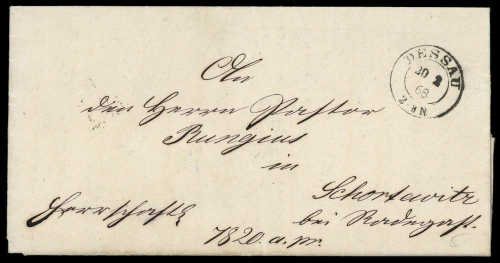 An
den Herrn Pastor
Rungius
in
Schortewitz
bei Radegast.
Herrschaftl.
1820. a. pr.
DESSAU
20 2
68
2-8 N.